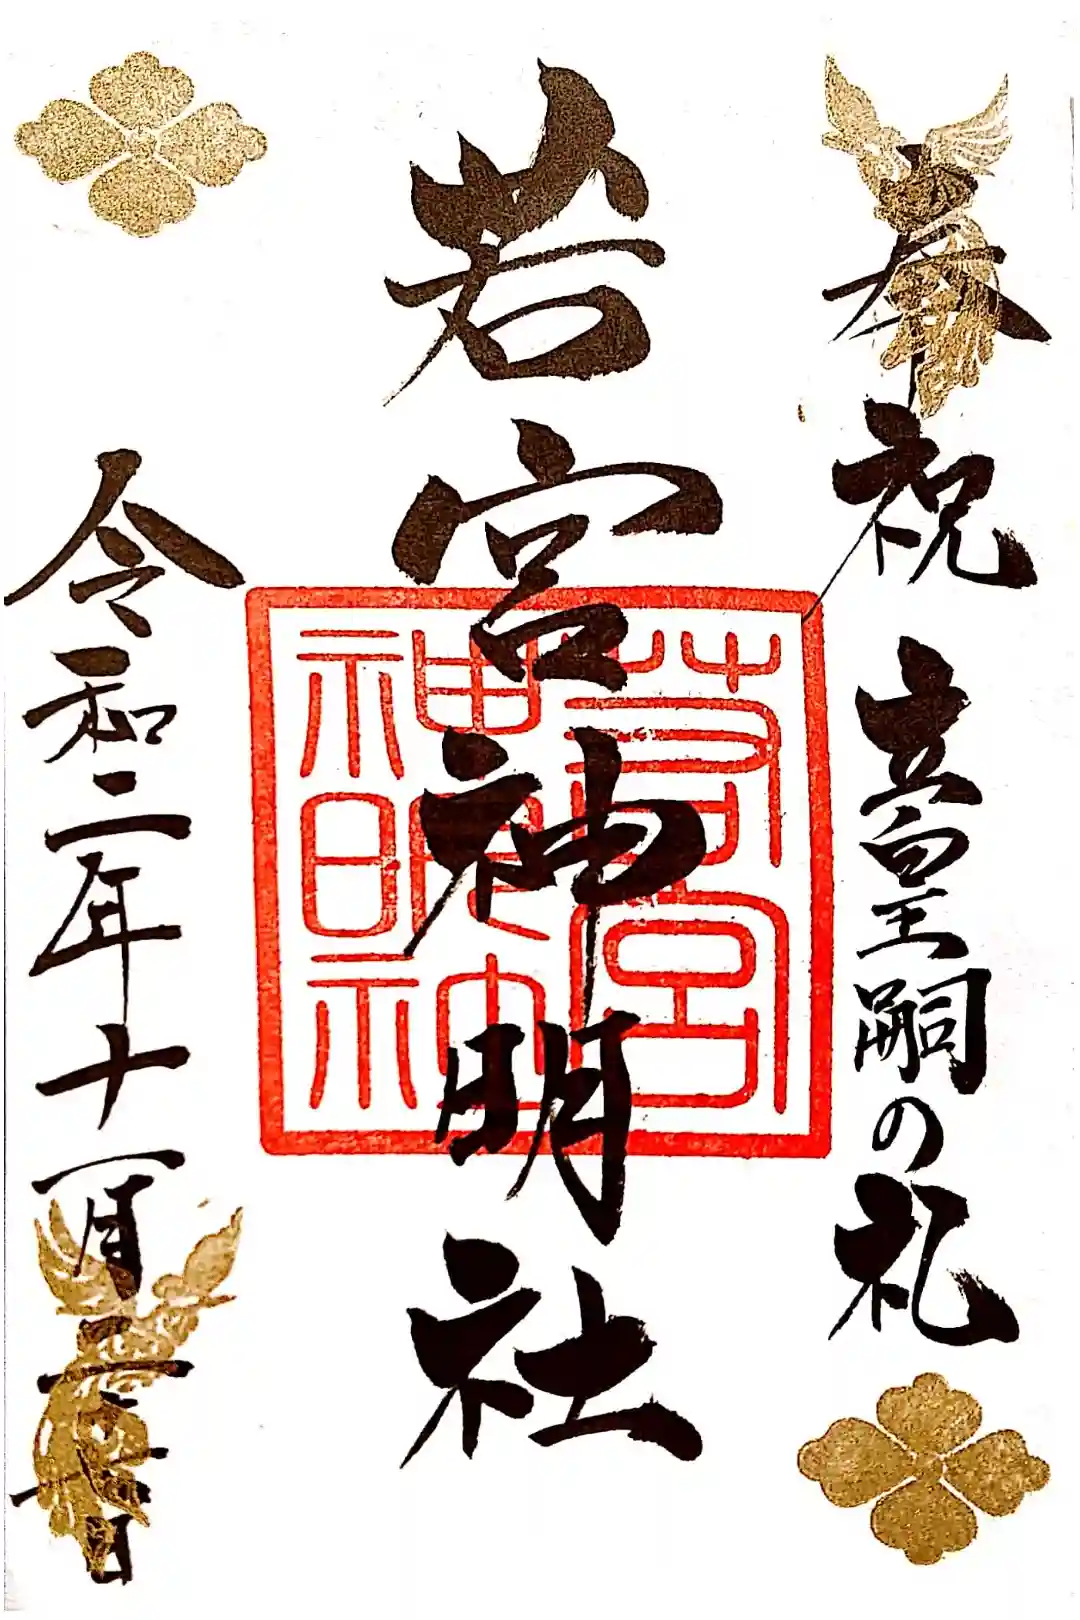 奉祝 立皇嗣の礼
若宮神明社
令和二年十一月 日
若宮
神明社